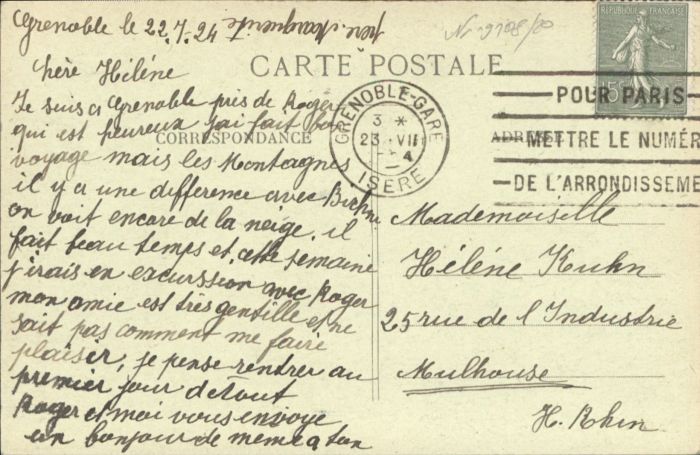 Grenoble le 22.7.24
père. Marguerite
Nr 9198/80
CARTE POSTALE
CORRESPONDANCE
ADRES
RÉPUBLIQUE FRANÇAISE
15
GRENOBLE-GARE
3 *
23 VII
4
ISÈRE
POUR PARIS
METTRE LE NUMÉR
DE L'ARRONDISSEME
Chère Hélène
Je suis a Grenoble près de Roger
qui est heureux j'ai fait bon
voyage mais les Montagnes
il y a une difference avec
on voit encore de la neige. il
fait beau temps et cette semaine
j'irais en excurssion avec Roger
mon amie est très gentille et ne
sait pas comment me faire
plaisir, je pense rentrer au
premier jour d'etout
Roger et moi vous envoye
un bonjour de meme a ton
Mademoiselle
Hélène Kuhn
25 rue de l'Industrie
Mulhouse
H. Rhin